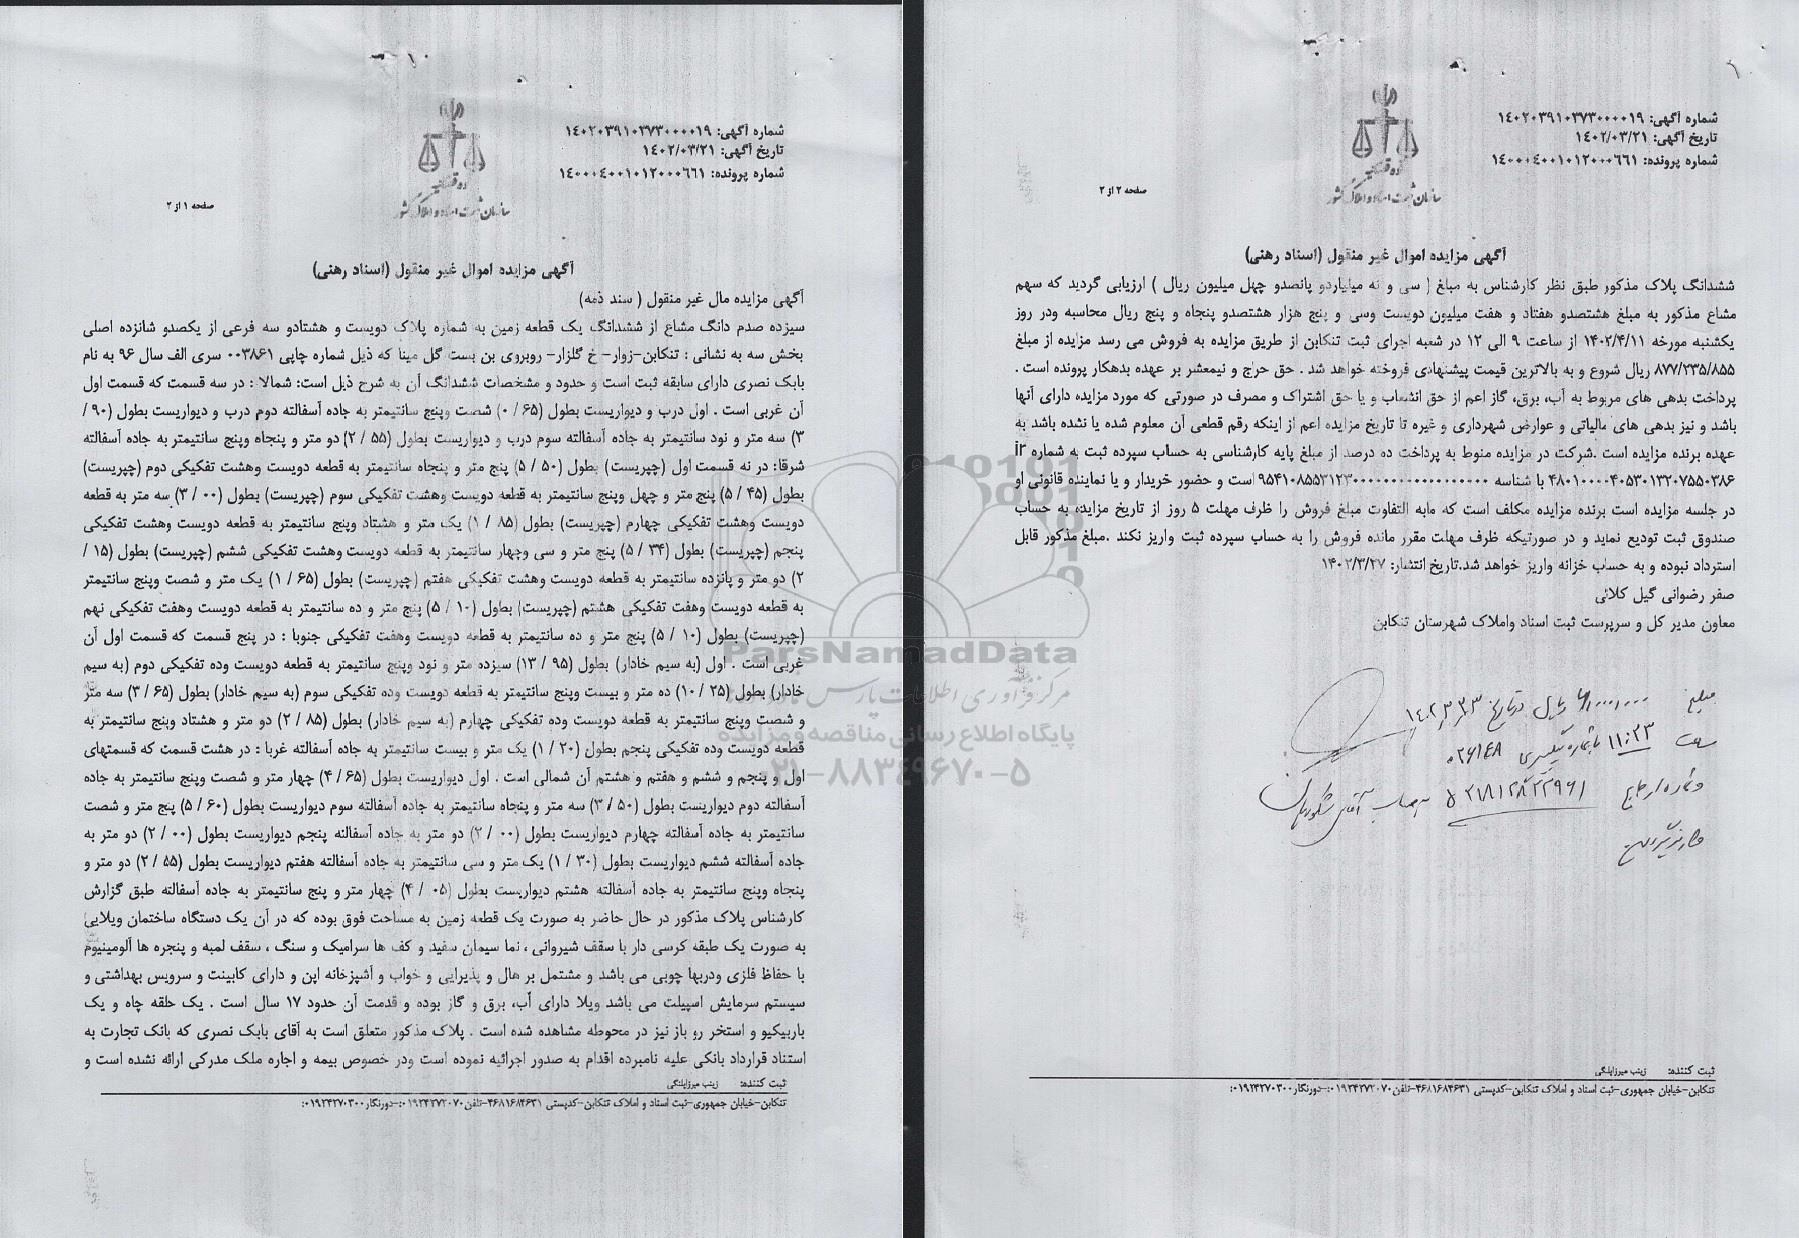 شماره آگهی: ۱۴۰۲۰۳۹۱۰۳۷۳۰۰۰۰۱۹
تاریخ آگهی: ۱۴۰۲/۰۳/۲۱
شماره پرونده: ۱۴۰۰۰۴۰۰۱۰۱۲۰۰۰۶۶۱
قوه قضائیه
سازمان ثبت اسناد و املاک کشور
صفحه ۱ از ۲
آگهی مزایده اموال غیر منقول (اسناد رهنی)
آگهی مزایده مال غیر منقول ( سند ذمه)
سیزده صدم دانگ مشاع از ششدانگ یک قطعه زمین به شماره پلاک دویست و هشتادو سه فرعی از یکصدو شانزده اصلی
بخش سه به نشانی : تنکابن-زوار- خ گلزار- روبروی بن بست گل مینا که ذیل شماره چاپی ۰۰۳۸۶۱ سری الف سال ۹۶ به نام
بابک نصری دارای سابقه ثبت است و حدود و مشخصات ششدانگ آن به شرح ذیل است: شمالا : در سه قسمت که قسمت اول
آن غربی است . اول درب و دیواریست بطول (۶۵ / ۰) شصت وپنج سانتیمتر به جاده آسفالته دوم درب و دیواریست بطول (۹۰ /
۳) سه متر و نود سانتیمتر به جاده آسفالته سوم درب و دیواریست بطول (۵۵ / ۲) دو متر و پنجاه وپنج سانتیمتر به جاده آسفالته
شرقا: در نه قسمت اول (چپریست) بطول (۵۰ / ۵) پنج متر و پنجاه سانتیمتر به قطعه دویست وهشت تفکیکی دوم (چپریست)
بطول (۴۵ / ۵) پنج متر و چهل وپنج سانتیمتر به قطعه دویست وهشت تفکیکی سوم (چپریست) بطول (۰۰ / ۳) سه متر به قطعه
دویست وهشت تفکیکی چهارم (چپریست) بطول (۸۵ / ۱) یک متر و هشتاد وپنج سانتیمتر به قطعه دویست وهشت تفکیکی
پنجم (چپریست) بطول (۳۴ / ۵) پنج متر و سی وچهار سانتیمتر به قطعه دویست وهشت تفکیکی ششم (چپریست) بطول (۱۵ /
۲) دو متر و پانزده سانتیمتر به قطعه دویست وهشت تفکیکی هفتم (چپریست) بطول (۶۵ / ۱) یک متر و شصت وپنج سانتیمتر
به قطعه دویست وهفت تفکیکی هشتم (چپریست) بطول (۱۰ / ۵) پنج متر و ده سانتیمتر به قطعه دویست وهفت تفکیکی نهم
(چپریست) بطول (۱۰ / ۵) پنج متر و ده سانتیمتر به قطعه دویست وهفت تفکیکی جنوبا : در پنج قسمت که قسمت اول آن
غربی است . اول (به سیم خادار) بطول (۹۵ / ۱۳) سیزده متر و نود وپنج سانتیمتر به قطعه دویست وده تفکیکی دوم (به سیم
خادار) بطول (۲۵ / ۱۰) ده متر و بیست وپنج سانتیمتر به قطعه دویست وده تفکیکی سوم (به سیم خادار) بطول (۶۵ / ۳) سه متر
و شصت وپنج سانتیمتر به قطعه دویست وده تفکیکی چهارم (به سیم خادار) بطول (۸۵ / ۲) دو متر و هشتاد وپنج سانتیمتر به
قطعه دویست وده تفکیکی پنجم بطول (۲۰ / ۱) یک متر و بیست سانتیمتر به جاده آسفالته غربا : در هشت قسمت که قسمتهای
اول و پنجم و ششم و هفتم و هشتم آن شمالی است . اول دیواریست بطول (۶۵ / ۴) چهار متر و شصت وپنج سانتیمتر به جاده
آسفالته دوم دیواریست بطول (۵۰ / ۳) سه متر و پنجاه سانتیمتر به جاده آسفالته سوم دیواریست بطول (۶۰ / ۵) پنج متر و شصت
سانتیمتر به جاده آسفالته چهارم دیواریست بطول (۰۰ / ۲) دو متر به جاده آسفالته پنجم دیواریست بطول (۰۰ / ۲) دو متر به
جاده آسفالته ششم دیواریست بطول (۳۰ / ۱) یک متر و سی سانتیمتر به جاده آسفالته هفتم دیواریست بطول (۵۵ / ۲) دو متر و
پنجاه وپنج سانتیمتر به جاده آسفالته هشتم دیواریست بطول (۰۵ / ۴) چهار متر و پنج سانتیمتر به جاده آسفالته طبق گزارش
کارشناس پلاک مذکور در حال حاضر به صورت یک قطعه زمین به مساحت فوق بوده که در آن یک دستگاه ساختمان ویلایی
به صورت یک طبقه کرسی دار با سقف شیروانی ، نما سیمان سفید و کف ها سرامیک و سنگ ، سقف لمبه و پنجره ها آلومینیوم
با حفاظ فلزی ودربها چوبی می باشد و مشتمل بر هال و پذیرایی و خواب و آشپزخانه اپن و دارای کابینت و سرویس بهداشتی و
سیستم سرمایش اسپیلت می باشد ویلا دارای آب، برق و گاز بوده و قدمت آن حدود ۱۷ سال است . یک حلقه چاه و یک
باربیکیو و استخر رو باز نیز در محوطه مشاهده شده است . پلاک مذکور متعلق است به آقای بابک نصری که بانک تجارت به
استناد قرارداد بانکی علیه نامبرده اقدام به صدور اجرائیه نموده است ودر خصوص بیمه و اجاره ملک مدرکی ارائه نشده است و
ثبت کننده: زینب میرزاپلنگی
تنکابن-خیابان جمهوری-ثبت اسناد و املاک تنکابن-کدپستی ۴۶۸۱۶۸۴۶۳۱-تلفن۰۱۹۲۴۲۷۲۰۷۰:-دورنگار۰۱۹۲۴۲۷۰۳۰۰:
شماره آگهی: ۱۴۰۲۰۳۹۱۰۳۷۳۰۰۰۰۱۹
تاریخ آگهی: ۱۴۰۲/۰۳/۲۱
شماره پرونده: ۱۴۰۰۰۴۰۰۱۰۱۲۰۰۰۶۶۱
قوه قضائیه
سازمان ثبت اسناد و املاک کشور
صفحه ۲ از ۲
آگهی مزایده اموال غیر منقول (اسناد رهنی)
ششدانگ پلاک مذکور طبق نظر کارشناس به مبلغ ( سی و نه میلیاردو پانصدو چهل میلیون ریال ) ارزیابی گردید که سهم
مشاع مذکور به مبلغ هشتصدو هفتاد و هفت میلیون دویست وسی و پنج هزار هشتصدو پنجاه و پنج ریال محاسبه ودر روز
یکشنبه مورخه ۱۴۰۲/۴/۱۱ از ساعت ۹ الی ۱۲ در شعبه اجرای ثبت تنکابن از طریق مزایده به فروش می رسد مزایده از مبلغ
۸۷۷/۲۳۵/۸۵۵ ریال شروع و به بالاترین قیمت پیشنهادی فروخته خواهد شد . حق حراج و نیمعشر بر عهده بدهکار پرونده است .
پرداخت بدهی های مربوط به آب، برق، گاز اعم از حق انشعاب و یا حق اشتراک و مصرف در صورتی که مورد مزایده دارای آنها
باشد و نیز بدهی های مالیاتی و عوارض شهرداری و غیره تا تاریخ مزایده اعم از اینکه رقم قطعی آن معلوم شده یا نشده باشد به
عهده برنده مزایده است .شرکت در مزایده منوط به پرداخت ده درصد از مبلغ پایه کارشناسی به حساب سپرده ثبت به شماره
با شناسه است و حضور خریدار و یا نماینده قانونی او
در جلسه مزایده است برنده مزایده مکلف است که مابه التفاوت مبلغ فروش را ظرف مهلت ۵ روز از تاریخ مزایده به حساب
صندوق ثبت تودیع نماید و در صورتیکه ظرف مهلت مقرر مانده فروش را به حساب سپرده ثبت واریز نکند .مبلغ مذکور قابل
استرداد نبوده و به حساب خزانه واریز خواهد شد.تاریخ انتشار: ۱۴۰۲/۳/۲۷
صفر رضوانی گیل کلائی
معاون مدیر کل و سرپرست ثبت اسناد واملاک شهرستان تنکابن
مبلغ ریال در تاریخ
ساعت ۱۱:۲۳
ثبت کننده: زینب میرزاپلنگی
تنکابن-خیابان جمهوری-ثبت اسناد و املاک تنکابن-کدپستی ۴۶۸۱۶۸۴۶۳۱-تلفن۰۱۹۲۴۲۷۲۰۷۰:-دورنگار۰۱۹۲۴۲۷۰۳۰۰:
ParsNamadData
مرکز فرآوری اطلاعات پارس نماد داده ها
پایگاه اطلاع رسانی مناقصه و مزایده
۰۲۱-۸۸۳۴۹۶۷۰-۵